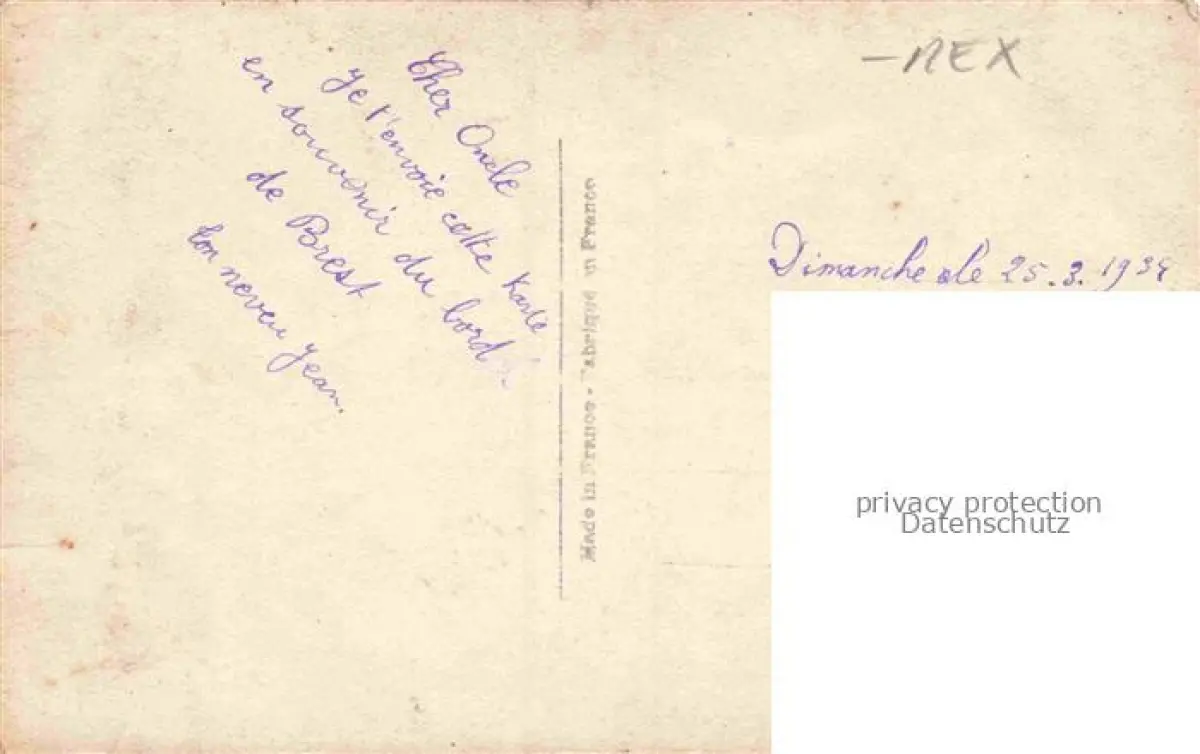 Cher Oncle
Je t'envoie cette Karte
en souvenir du bord
de Brest
ton neveu Jean.
Made in France - Fabriqué en France
-MEX
Dimanche le 25.3.193
privacy protection
Datenschutz